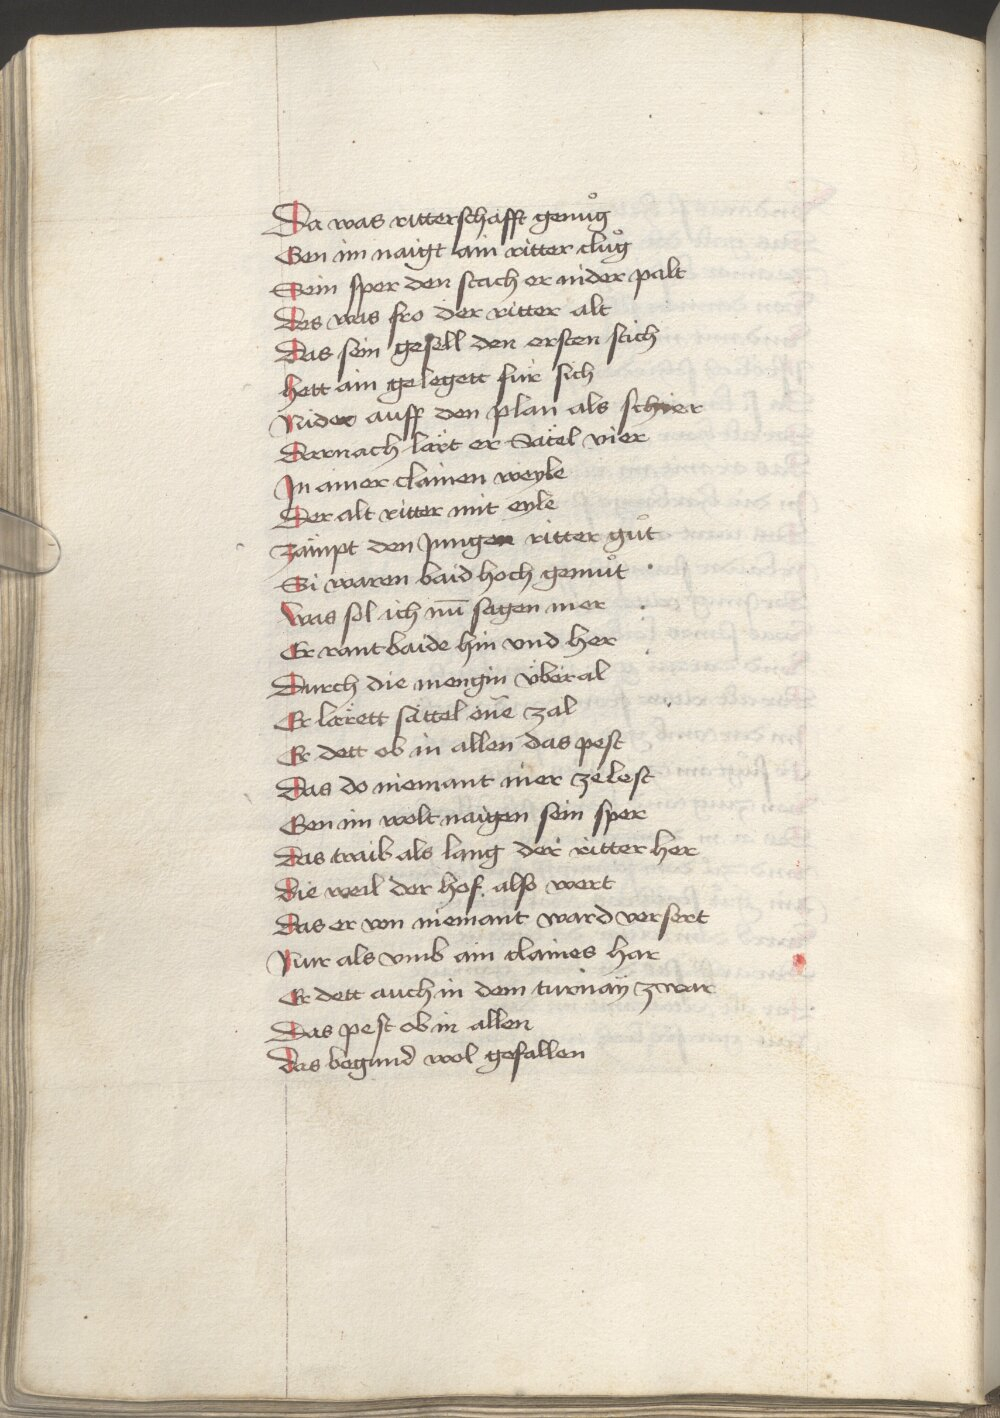 Da was ritterschafft genuͦg
Gen im naigt ain ritter cluͦg
Sein sper den stach er nider palt
Des was fro der ritter alt
Das sein gesell den ersten stich
hett ain gelegett für sich
Nider auff den plan als schier
Darnach lärt er Sätel vier
In ainer clainen weyle
Der alt ritter mit eyle
zämpt den Jungen ritter guͦt
Si waren baid hoch gemuͦt
Was sol ich nu̅ sagen mer
Er rant baide hin vnd her
Durch die mengin überal
Er lärett sättel one zal
Er dett ob in allen das pest
Das do niemant mer zelest
Gen im wolt naigen sein sper
Das traib als lang der ritter her
die weil der hof also wert
Das er von niemant ward versert
Nur als vmb ain claines har
Er dett auch in dem turnaÿ zwar
Das pest ob in allen
Das begund wol gefallen